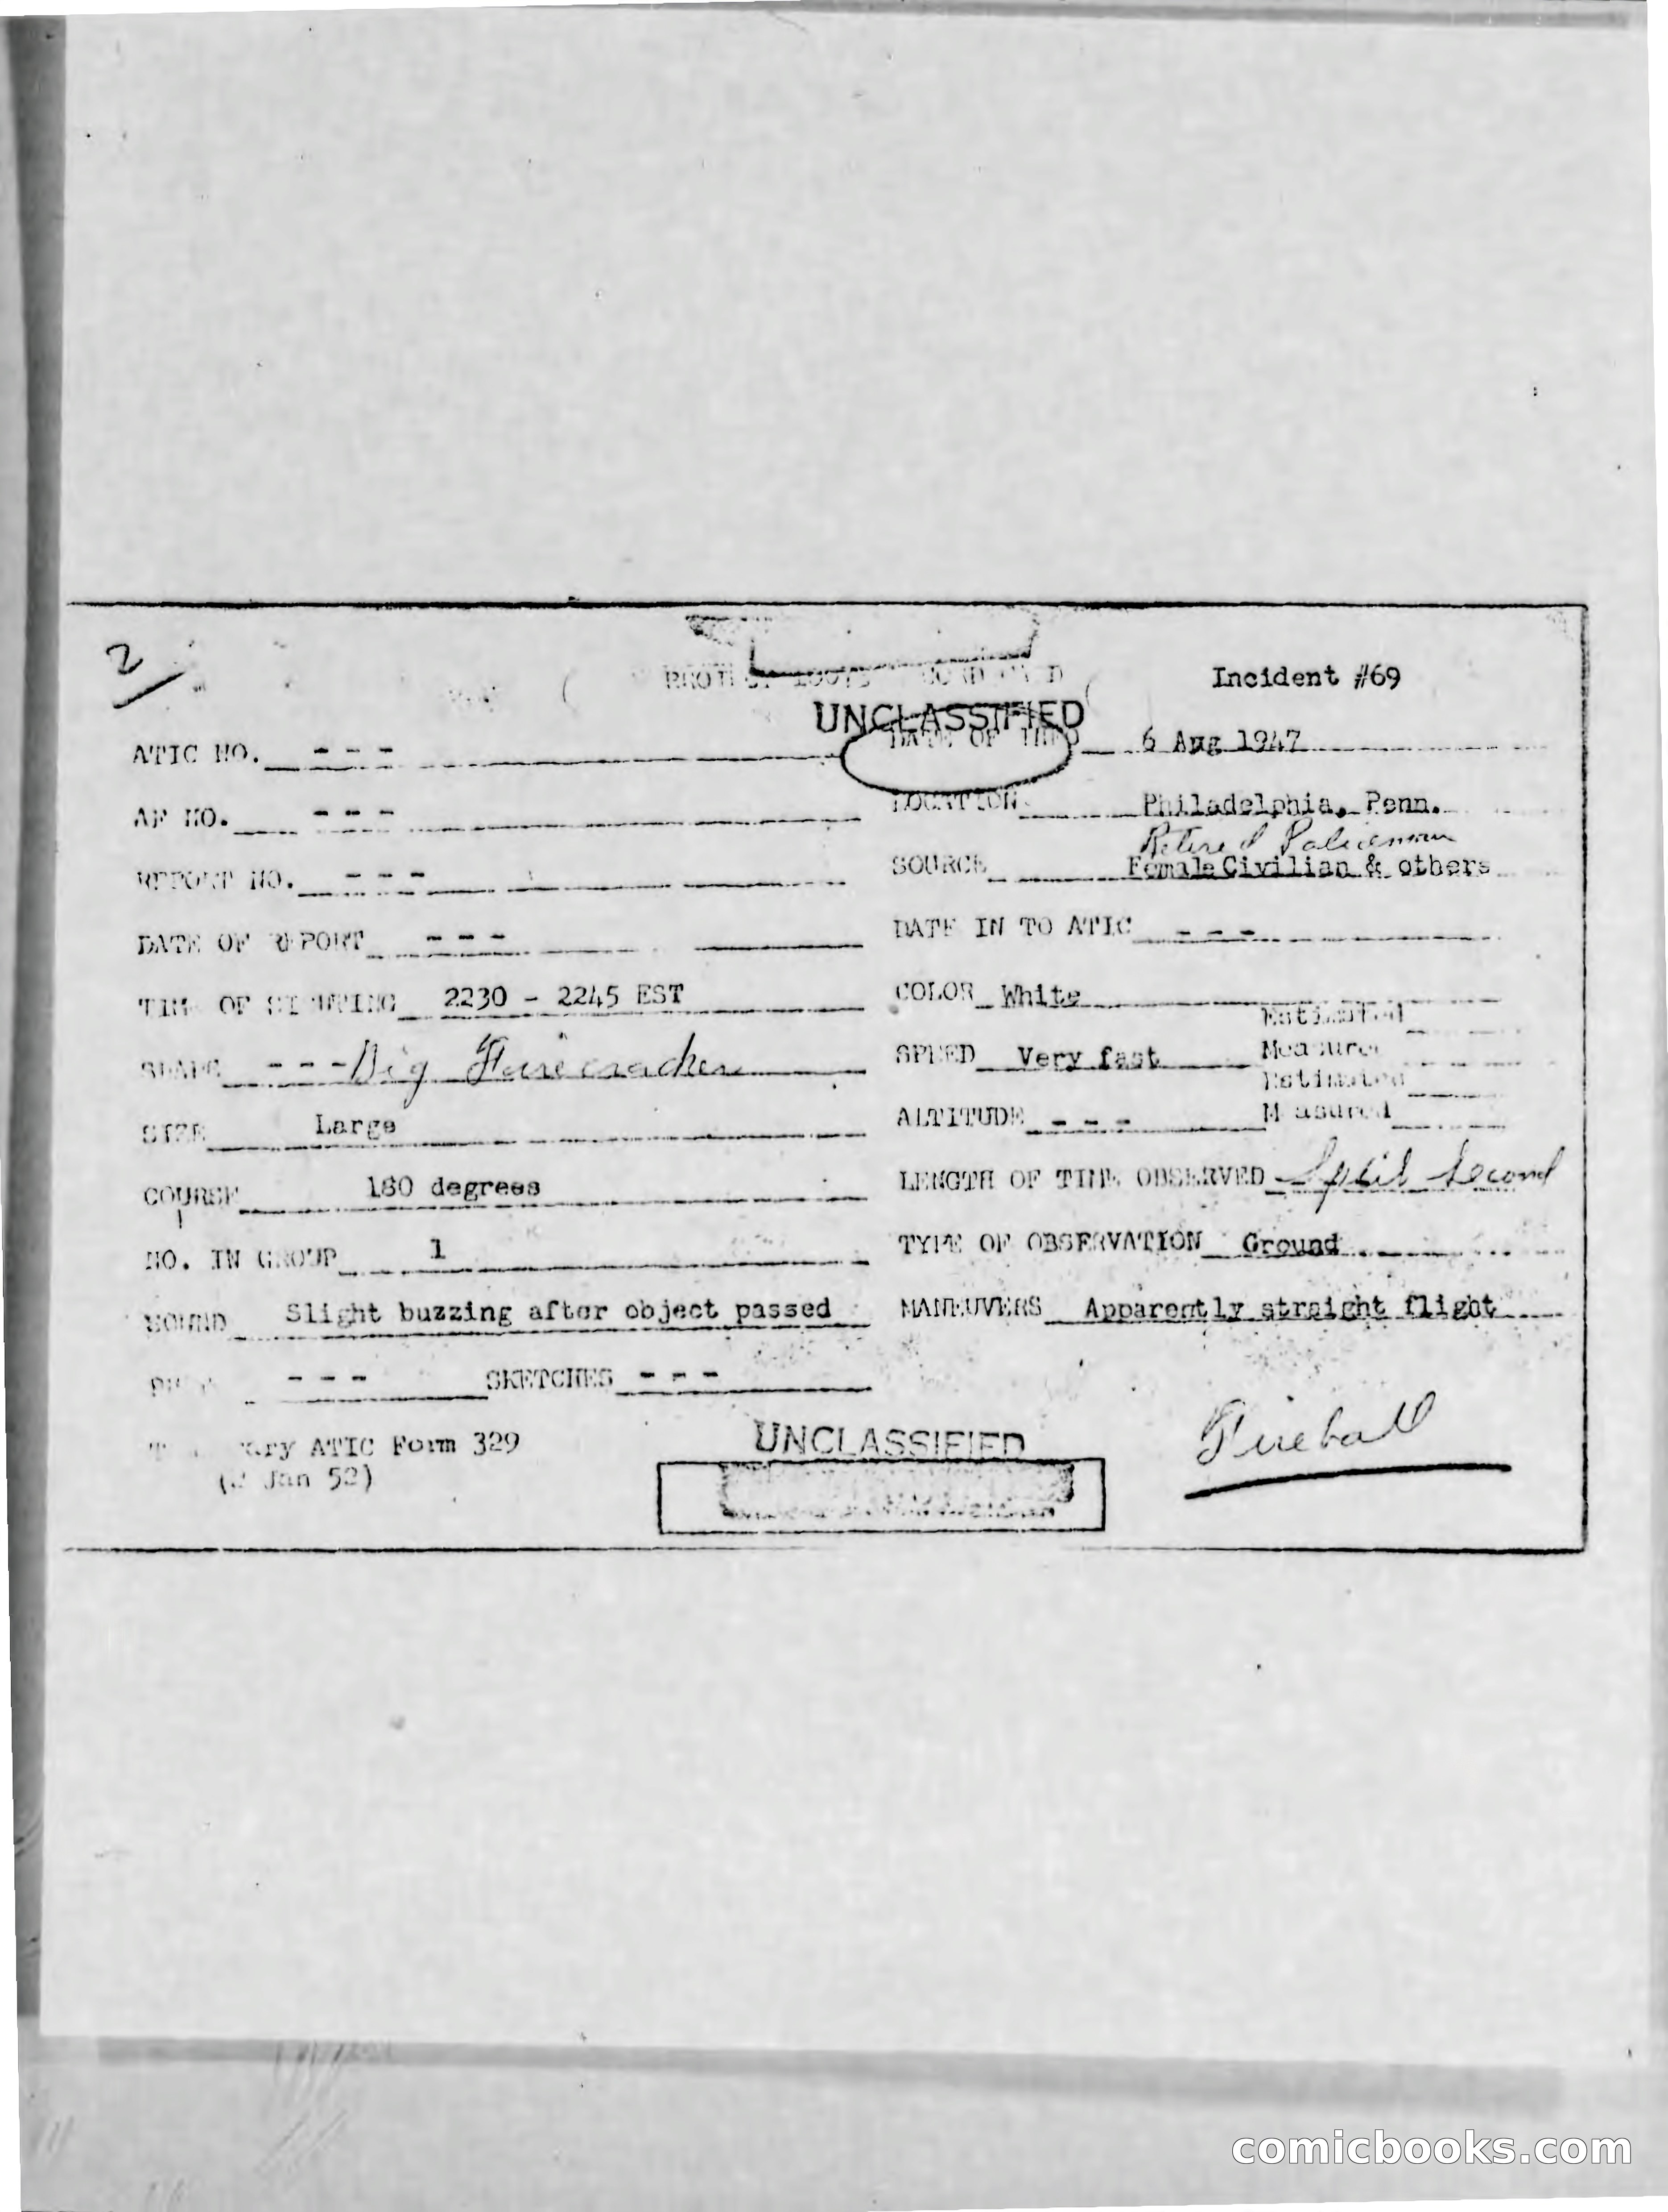 2
Incident #69
UNCLASSIFIED
ATIC NO. - - -
DATE OF INFO 6 Aug 1947
AF NO. - - -
LOCATION Philadelphia, Penn.
Retired Policeman
REPORT NO. - - -
SOURCE Female Civilian & others
DATE OF REPORT - - -
DATE IN TO ATIC - - -
TIME OF SIGHTING 2230 - 2245 EST
COLOR White
Estimated
SHAPE - - - Big Firecracker
SPEED Very fast
Measured
Estimated
SIZE Large
ALTITUDE - - -
Measured
COURSE 180 degrees
LENGTH OF TIME OBSERVED Split second
NO. IN GROUP 1
TYPE OF OBSERVATION Ground
SOUND Slight buzzing after object passed
MANEUVERS Apparently straight flight
- - - SKETCHES - - -
Fireball
ATIC Form 329
Jan 52)
UNCLASSIFIED
comicbooks.com